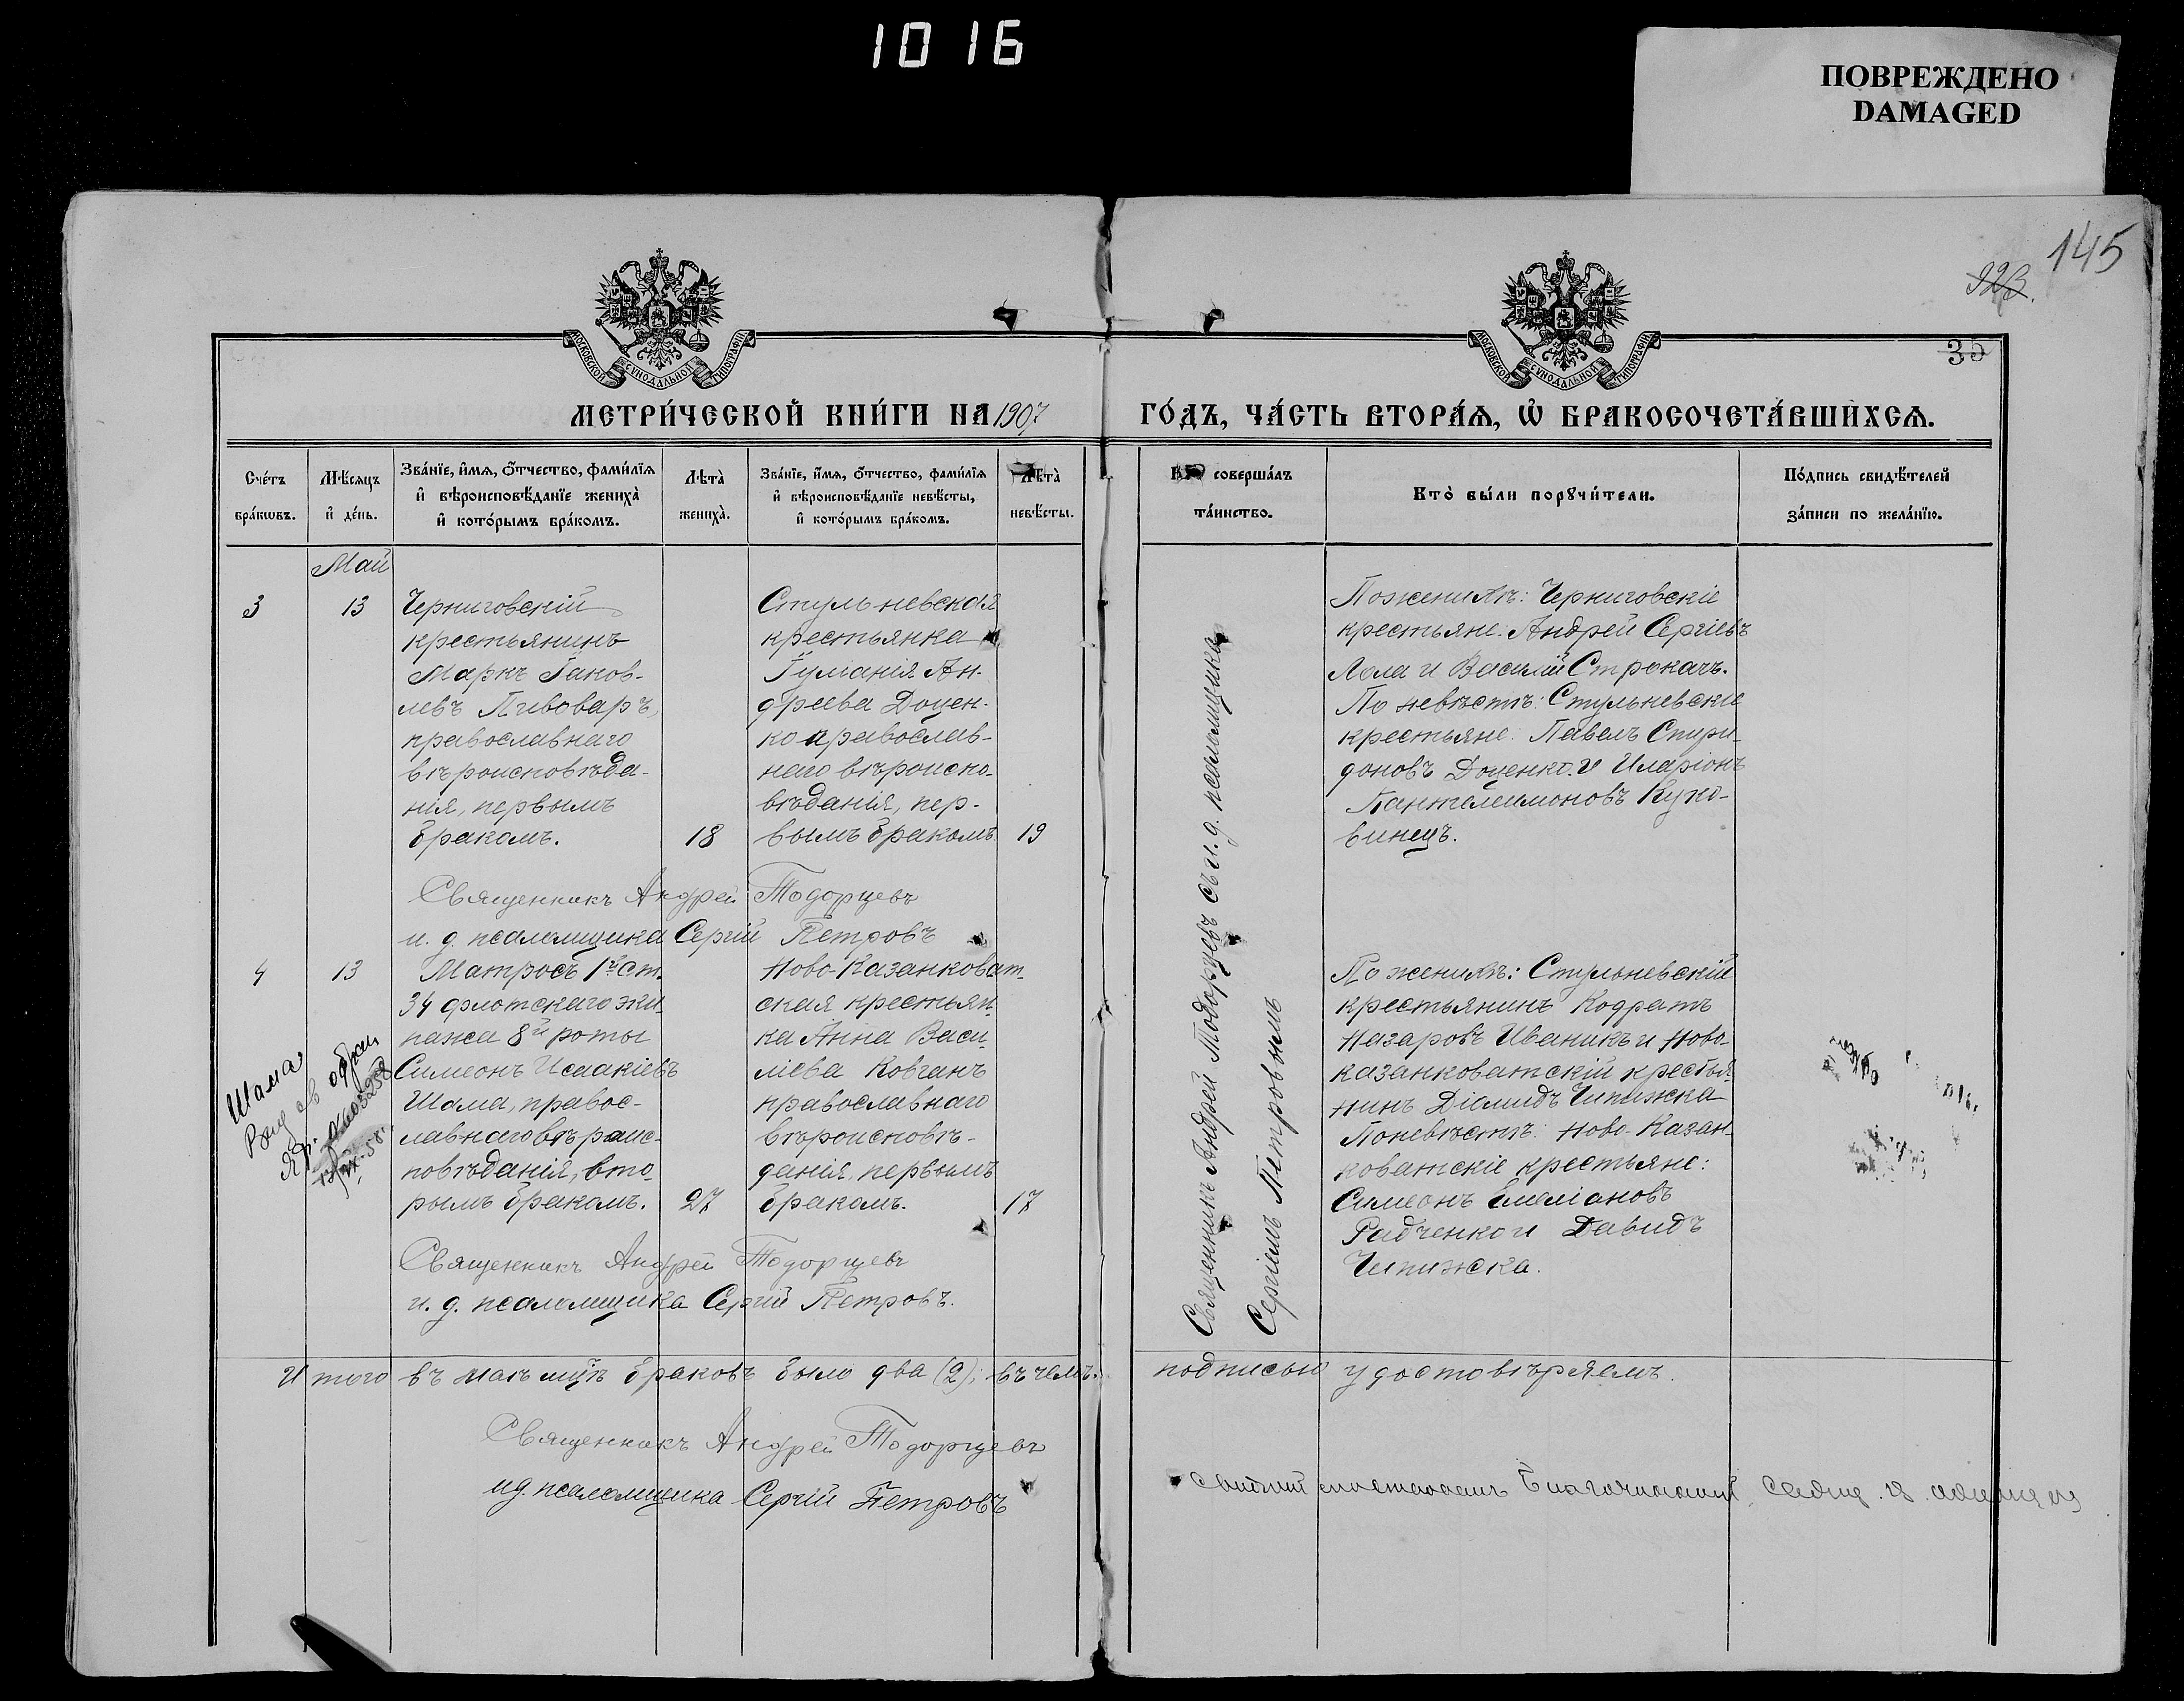 1016
ПОВРЕЖДЕНО
DAMAGED
145
323.
35
МОСКОВСКОЙ СѴНОДАЛЬНОЙ ТИПОГРАФІИ
МОСКОВСКОЙ СѴНОДАЛЬНОЙ ТИПОГРАФІИ
МЕТРИ́ЧЕСКОЙ КНИ́ГИ НА 1907 ГО́ДЪ, ЧА́СТЬ ВТОРА́Ѧ, Ѡ҆ БРАКОСОЧЕТА́ВШИХСѦ.
Сче́тъ
бра́кѡвъ.
Мѣ́сѧцъ
и҆ де́нь.
Зва́нїе, и҆́мѧ, ѻ҆́тчество, фами́лїѧ
и҆ вѣроисповѣ́данїе жениха̀
и҆ кото́рымъ бра́комъ.
Лѣта̀
жениха̀.
Зва́нїе, и҆́мѧ, ѻ҆́тчество, фами́лїѧ
и҆ вѣроисповѣ́данїе невѣ́сты,
и҆ кото́рымъ бра́комъ.
Лѣта̀
невѣ́сты.
Кто̀ соверша́лъ
та́инство.
Кто̀ бы́ли порꙋчи́тели.
По́дпись свидѣ́телей
за́писи по жела́нїю.
Май
3
13
Черниговскій
крестьянинъ
Маркъ Іаков-
левъ Пивоваръ,
православнаго
вѣроисповѣда-
нія, первымъ
бракомъ.
18
Стульневская
крестьянка
Іуліанія Ан-
дреева Доцен-
ко православ-
наго вѣроиспо-
вѣданія, пер-
вымъ бракомъ
19
По женихѣ: Черниговскіе
крестьяне: Андрей Сергіевъ
Лола и Василій Строкачъ.
По невѣстѣ: Стульневскіе
крестьяне: Павелъ Спири-
доновъ Доценко и Иларіонъ
Пантелеимоновъ Куко-
винецъ.
Священникъ Андрей Тодорцевъ
и. д. псаломщика Сергій Петровъ
4
13
Матросъ 1й ст.
34 флотскаго эки-
пажа 8й роты
Симеонъ Исаакіевъ
Шама, правос-
лавнаго вѣроис-
повѣданія, вто-
рымъ бракомъ.
27
Ново-Казанковат-
ская крестьян-
ка Анна Васи-
ліева Ковганъ
православнаго
вѣроисповѣ-
данія, первымъ
бракомъ.
17
По женихѣ: Стульневскій
крестьянинъ Кодратъ
Назаровъ Иваникъ и Ново-
казанковатскій крестья-
нинъ Діомидъ Чепижка
По невѣстѣ: Ново-Казан-
коватскіе крестьяне:
Симеонъ Емеліановъ
Радченко и Давидъ
Чепижка.
Шама
Священникъ Андрей Тодорцевъ
и. д. псаломщика Сергій Петровъ.
Священникъ Андрей Тодорцевъ съ и. д. псаломщика
Сергіемъ Петровымъ
Итого въ маѣ мцѣ браковъ было два (2); въ чемъ подписью удостовѣряемъ.
Священникъ Андрей Тодорцевъ
и д. псаломщика Сергій Петровъ